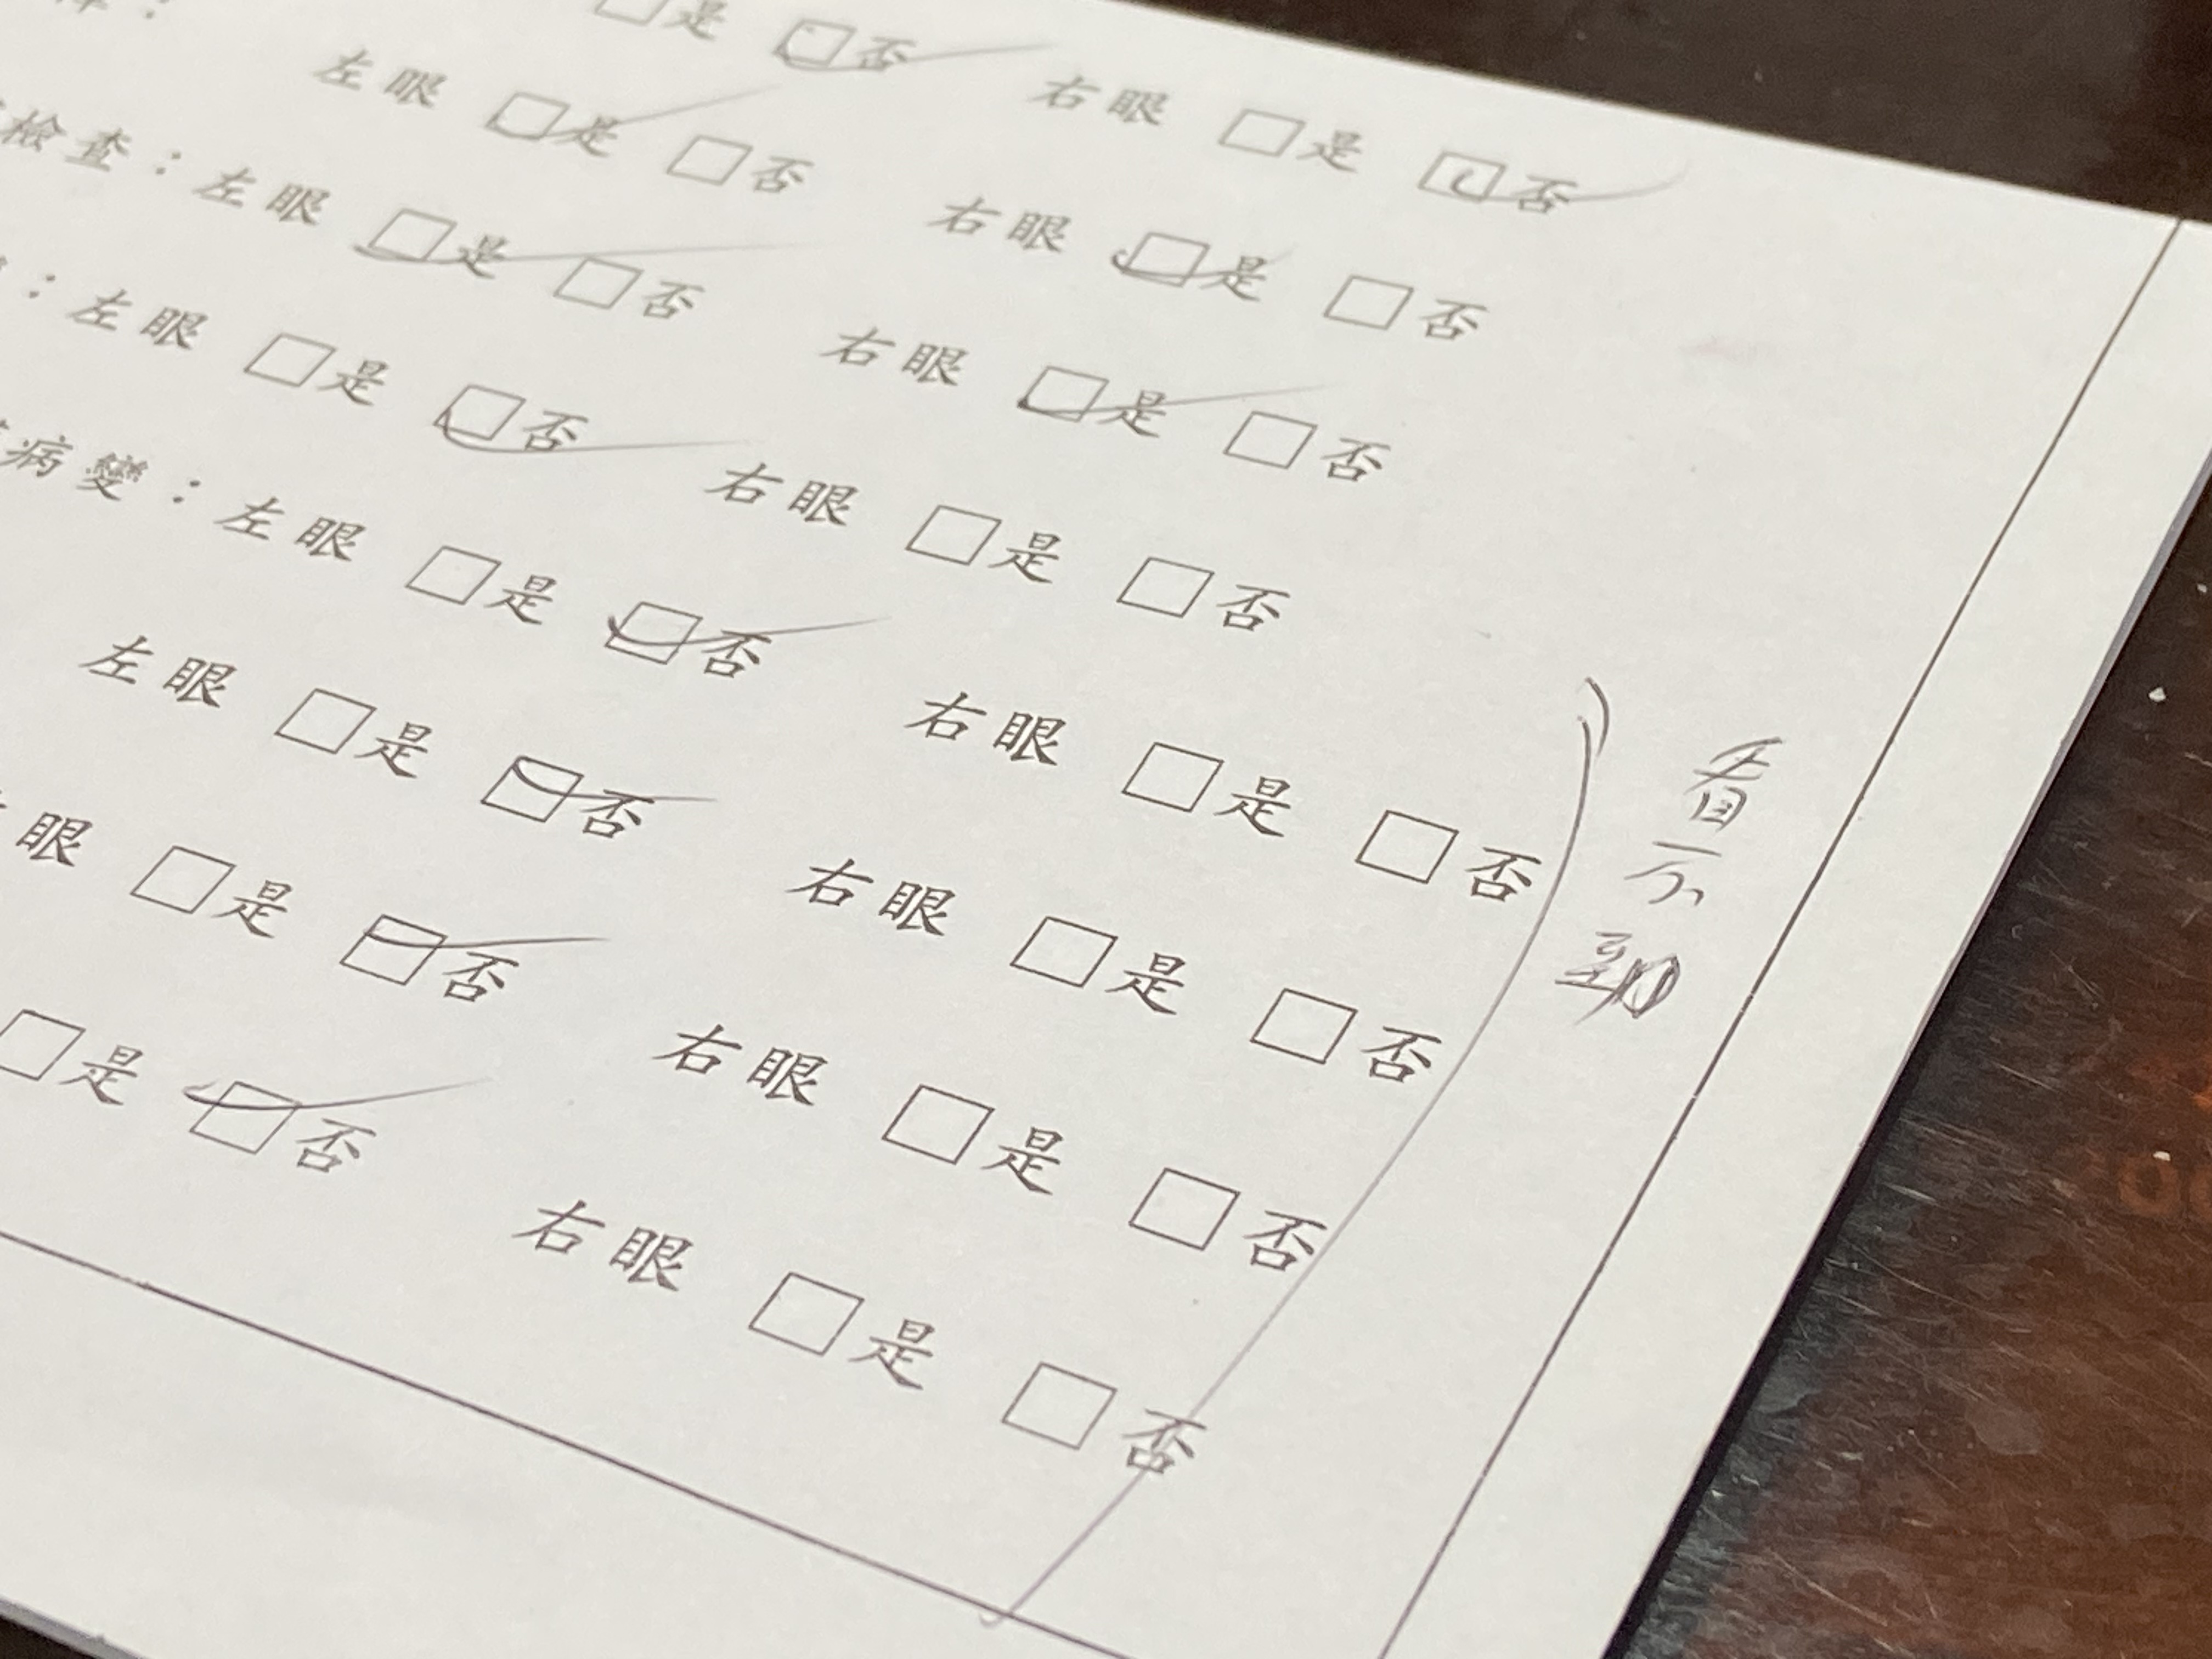 □是 ☑否 右眼 □是 ☑否
左眼 ☑是 □否 右眼 ☑是 □否
檢查：左眼 ☑是 □否 右眼 ☑是 □否
：左眼 □是 ☑否 右眼 □是 □否
病變：左眼 □是 ☑否 右眼 □是 □否
左眼 □是 ☑否 右眼 □是 □否
眼 □是 ☑否 右眼 □是 □否
□是 ☑否 右眼 □是 □否
看不到